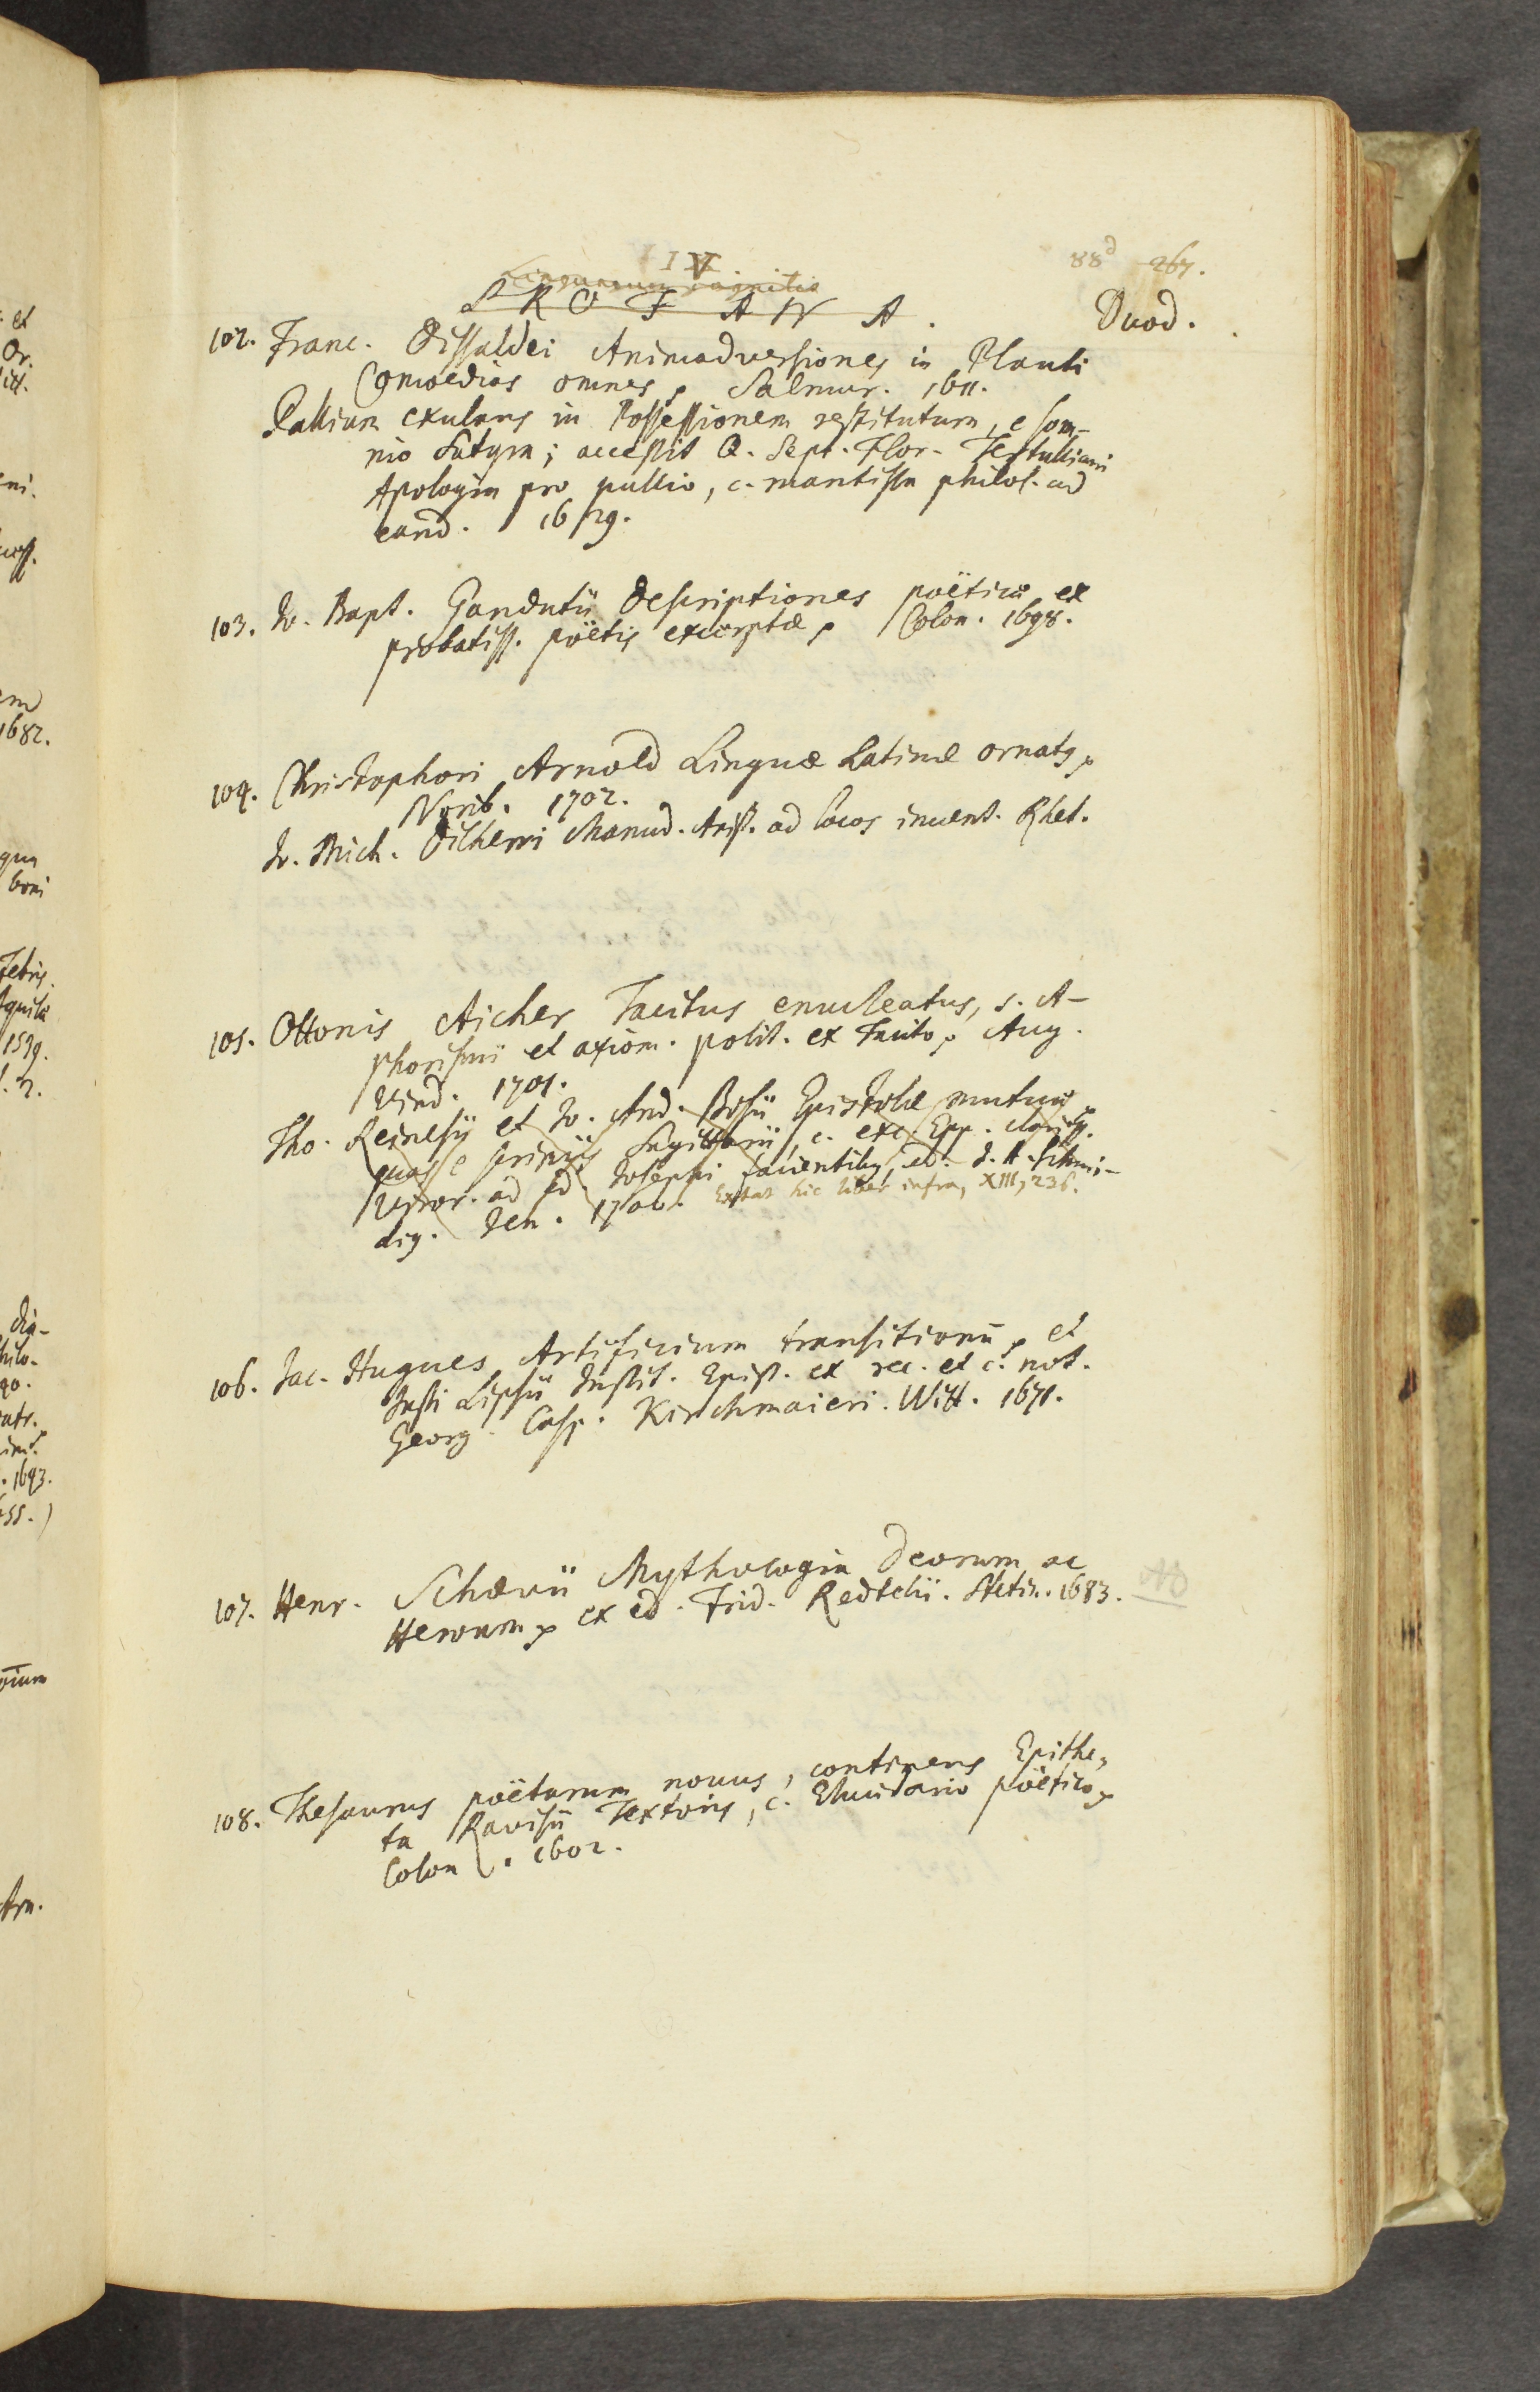 IV
88d 267.
PROFANA.
Duod.
102. Franc. Dissaldei Animadversiones in Plauti
Comoedias omnes, Salmur. 1611.
Pallium exulans in Possessionem restitutum, e som-
nio Satyra; accessit Q. Sept. Flor. Tertulliani
Apologia pro pallio, c. mantissa philol. ad
eand. 1629.
103. Jo. Bapt. Gandutii Descriptiones poëticæ ex
probatiss. poëtis excerptæ, Colon. 1698.
104. Christophori Arnold Linguæ Latinæ ornatg,
Norib. 1702.
Jo. Mich. Dilherri Manud. Arist. ad locos invent. Rhet.
105. Ottonis Aicher Tacitus enucleatus, s. A-
phorismi et axiom. polit. ex Tacito, Aug.
Vind. 1701.
Tho. Reinesij et Jo. And. Bosii Epistolæ mutuæ
quas e scriniis Sagittarii, c. exc. Epp. clariss.
Viror. ad ed. Josephi facientibg, ed. J. A. Schmi-
dig. Jen. 1700. Extat hic liber infra, XIII, 236.
106. Jac. Hugues Artificium transitionū, et
Justi Lipsii Instit. Epist. ex rec. et c. not.
Georg. Casp. Kirchmaieri. Witt. 1671.
107. Henr. Schævii Mythologia Deorum ac
Heroum, ex ed. Frid. Redtelii. Stetin. 1683.
108. Thesaurus poëtarum novus, continens Epithe-
ta Ravisii Textoris, c. Elucidario poëtico,
Colon. 1602.